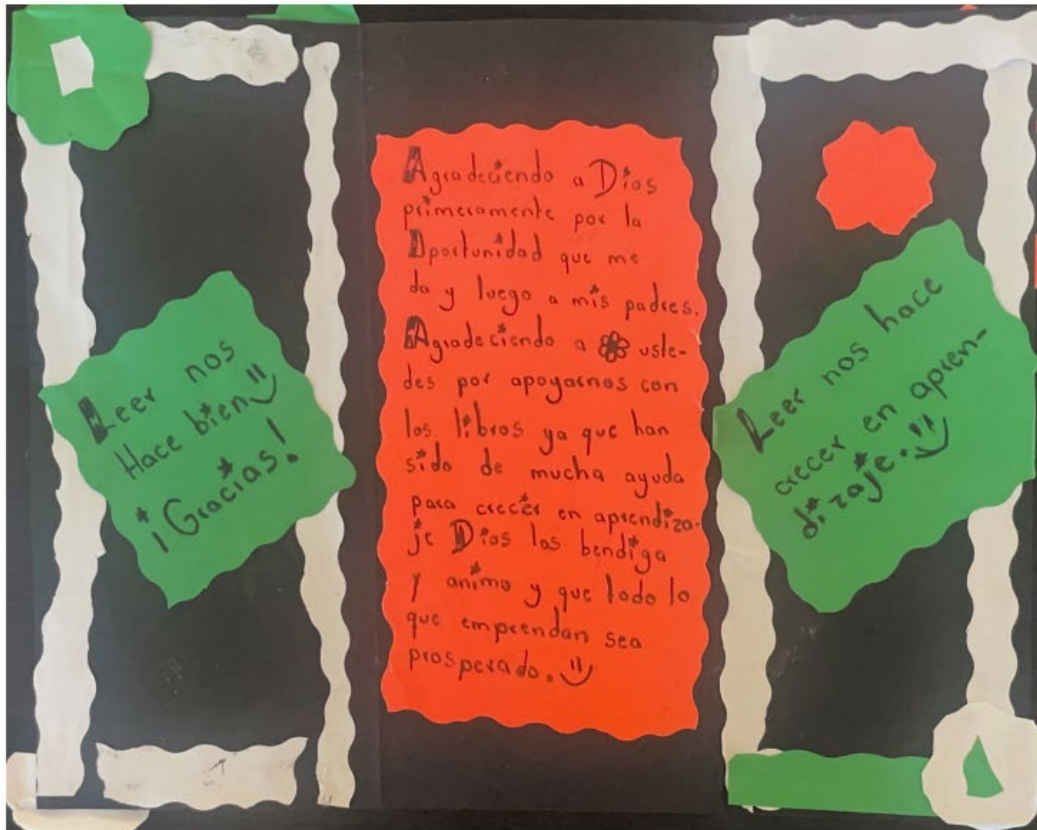 Leer nos
Hace bien
¡Gracias!
Agradeciendo a Dios
primeramente por la
Oportunidad que me
da y luego a mis padres.
Agradeciendo a uste-
des por apoyarnos con
los libros ya que han
sido de mucha ayuda
para crecer en aprendiza-
je Dios los bendiga
y animo y que todo lo
que emprendan sea
prosperado.
Leer nos hace
crecer en apren-
dizaje.